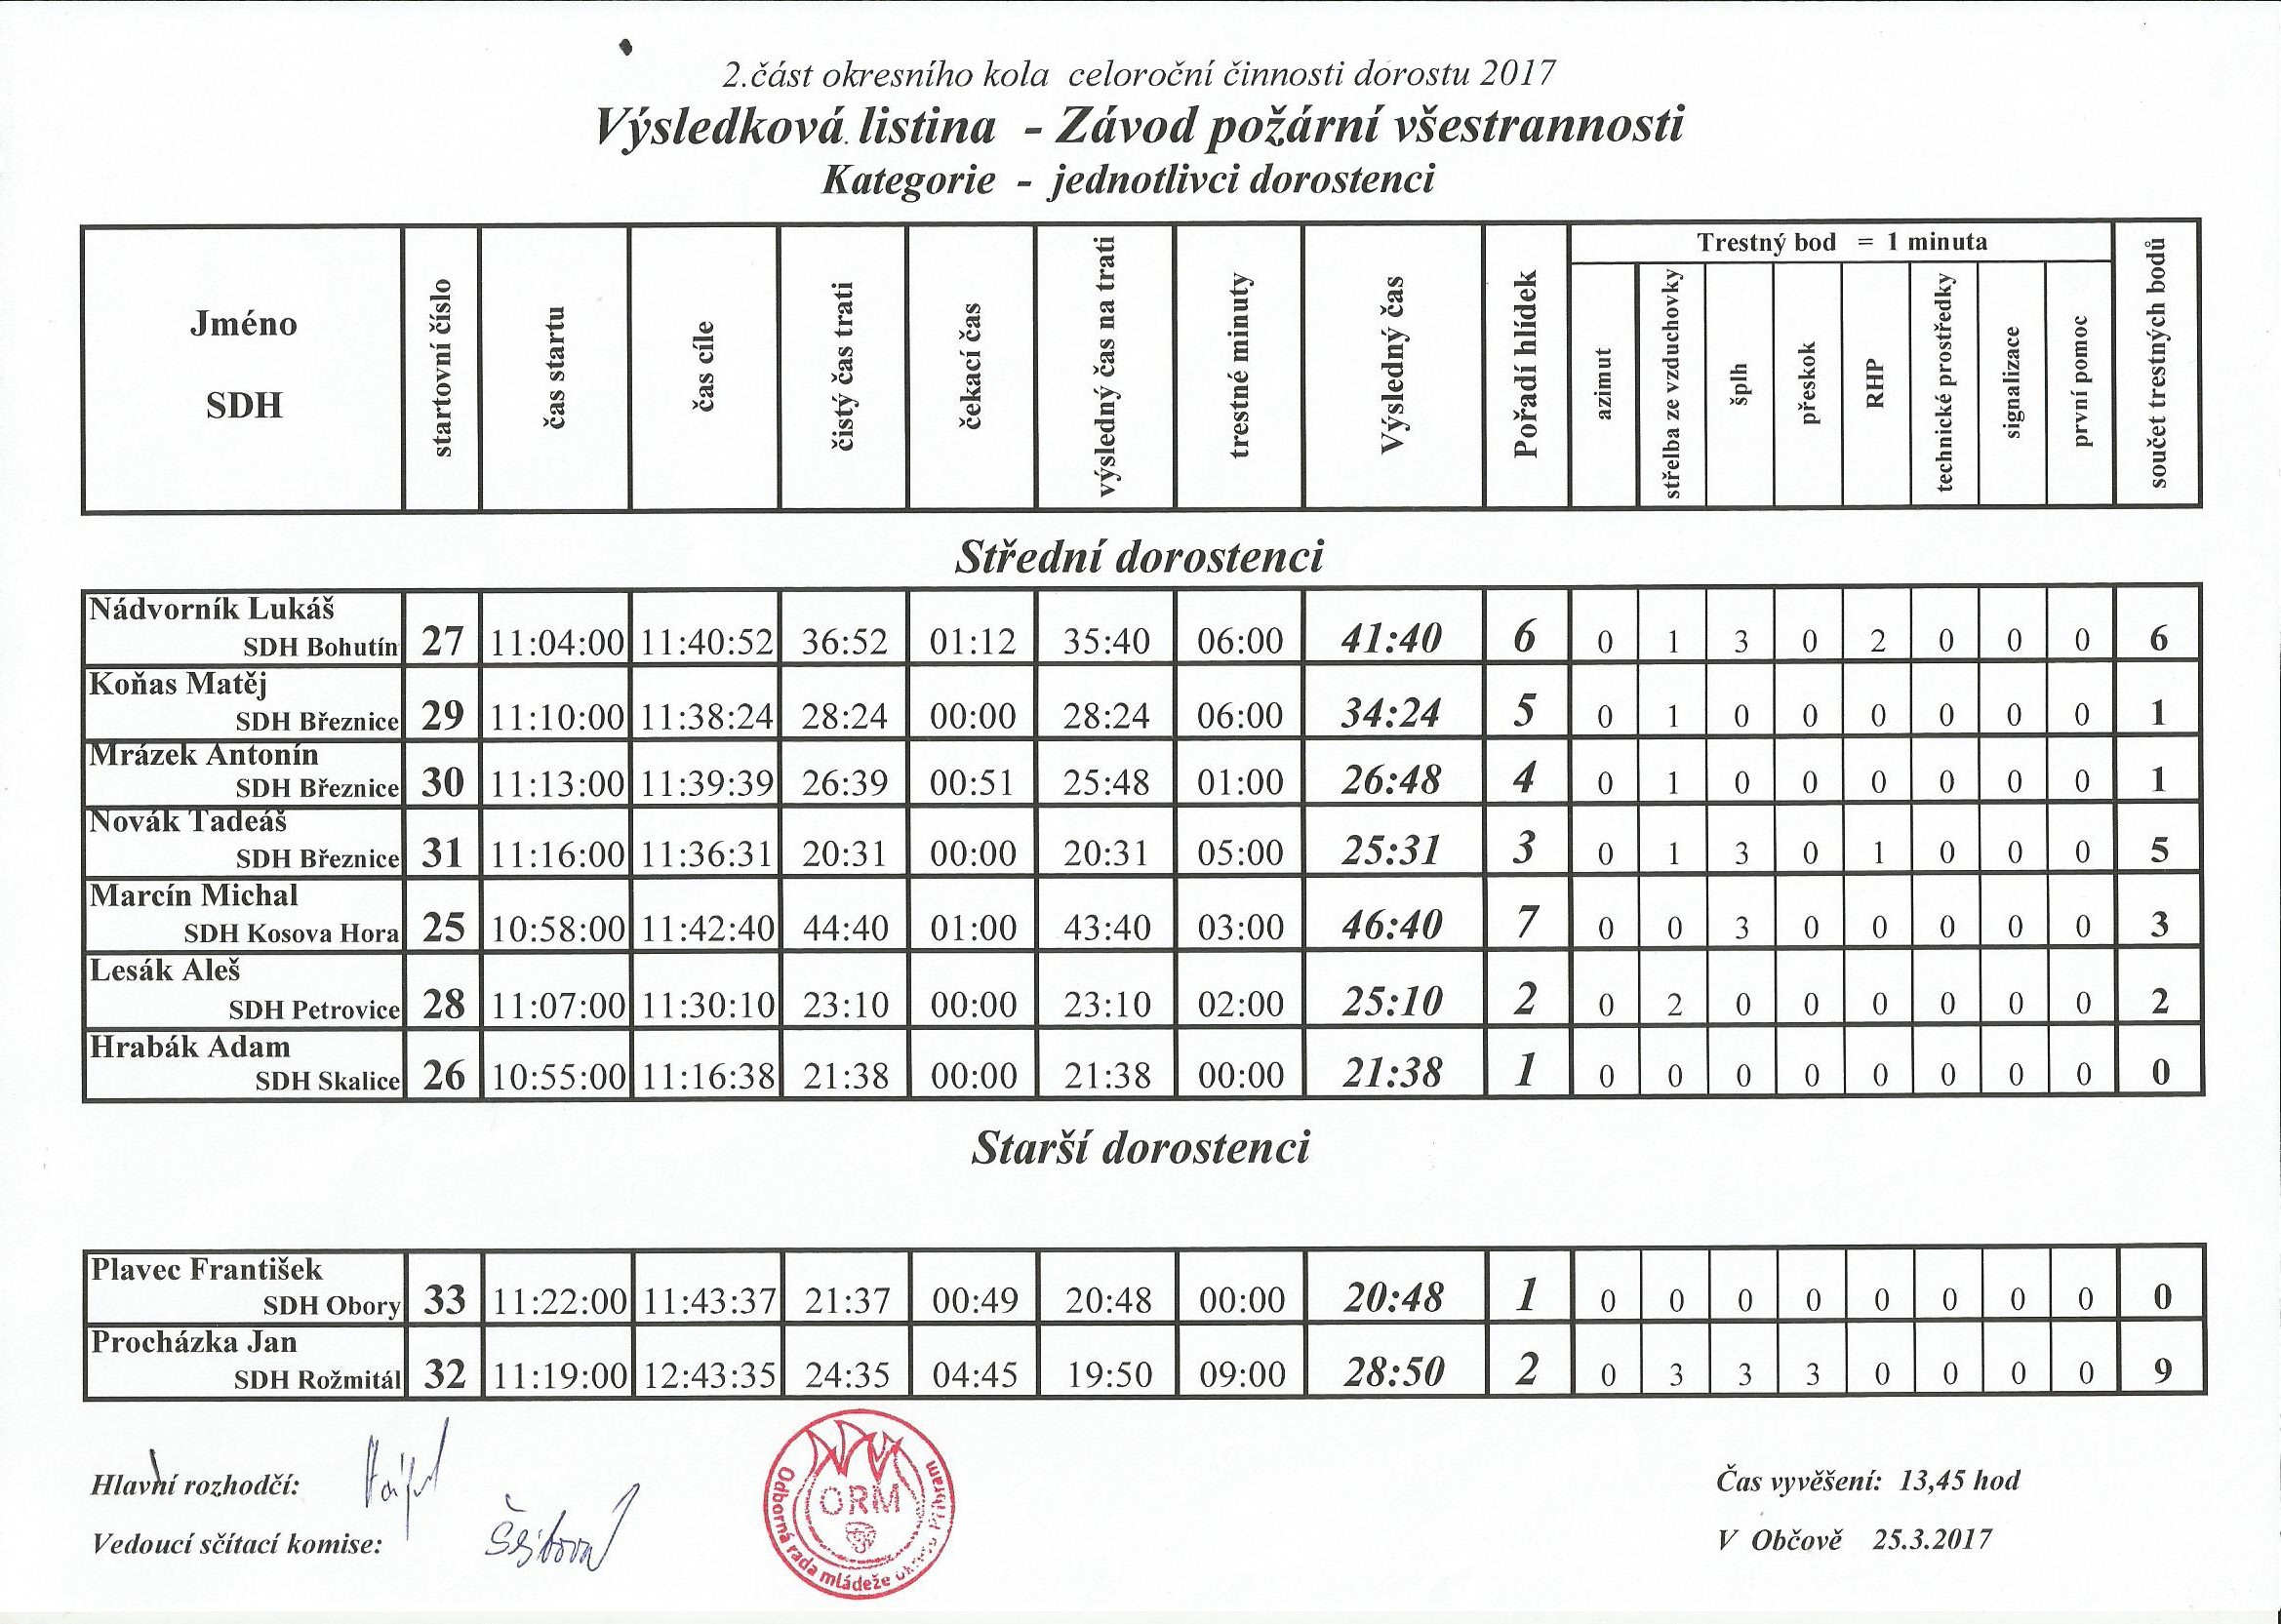 2.část okresního kola celoroční činnosti dorostu 2017
Výsledková listina - Závod požární všestrannosti
Kategorie - jednotlivci dorostenci
Jméno
SDH
startovní číslo
čas startu
čas cíle
čistý čas trati
čekací čas
výsledný čas na trati
trestné minuty
Výsledný čas
Pořadí hlídek
Trestný bod = 1 minuta
azimut
střelba ze vzduchovky
šplh
přeskok
RHP
technické prostředky
signalizace
první pomoc
součet trestných bodů
Střední dorostenci
Nádvorník Lukáš
SDH Bohutín 27 11:04:00 11:40:52 36:52 01:12 35:40 06:00 41:40 6 0 1 3 0 2 0 0 0 6
Koňas Matěj
SDH Březnice 29 11:10:00 11:38:24 28:24 00:00 28:24 06:00 34:24 5 0 1 0 0 0 0 0 0 1
Mrázek Antonín
SDH Březnice 30 11:13:00 11:39:39 26:39 00:51 25:48 01:00 26:48 4 0 1 0 0 0 0 0 0 1
Novák Tadeáš
SDH Březnice 31 11:16:00 11:36:31 20:31 00:00 20:31 05:00 25:31 3 0 1 3 0 1 0 0 0 5
Marcín Michal
SDH Kosova Hora 25 10:58:00 11:42:40 44:40 01:00 43:40 03:00 46:40 7 0 0 3 0 0 0 0 0 3
Lesák Aleš
SDH Petrovice 28 11:07:00 11:30:10 23:10 00:00 23:10 02:00 25:10 2 0 2 0 0 0 0 0 0 2
Hrabák Adam
SDH Skalice 26 10:55:00 11:16:38 21:38 00:00 21:38 00:00 21:38 1 0 0 0 0 0 0 0 0 0
Starší dorostenci
Plavec František
SDH Obory 33 11:22:00 11:43:37 21:37 00:49 20:48 00:00 20:48 1 0 0 0 0 0 0 0 0 0
Procházka Jan
SDH Rožmitál 32 11:19:00 12:43:35 24:35 04:45 19:50 09:00 28:50 2 0 3 3 3 0 0 0 0 9
Hlavní rozhodčí:
Vedoucí sčítací komise:
ORM
Odborná rada mládeže okresu Příbram
Čas vyvěšení: 13,45 hod
V Občově 25.3.2017